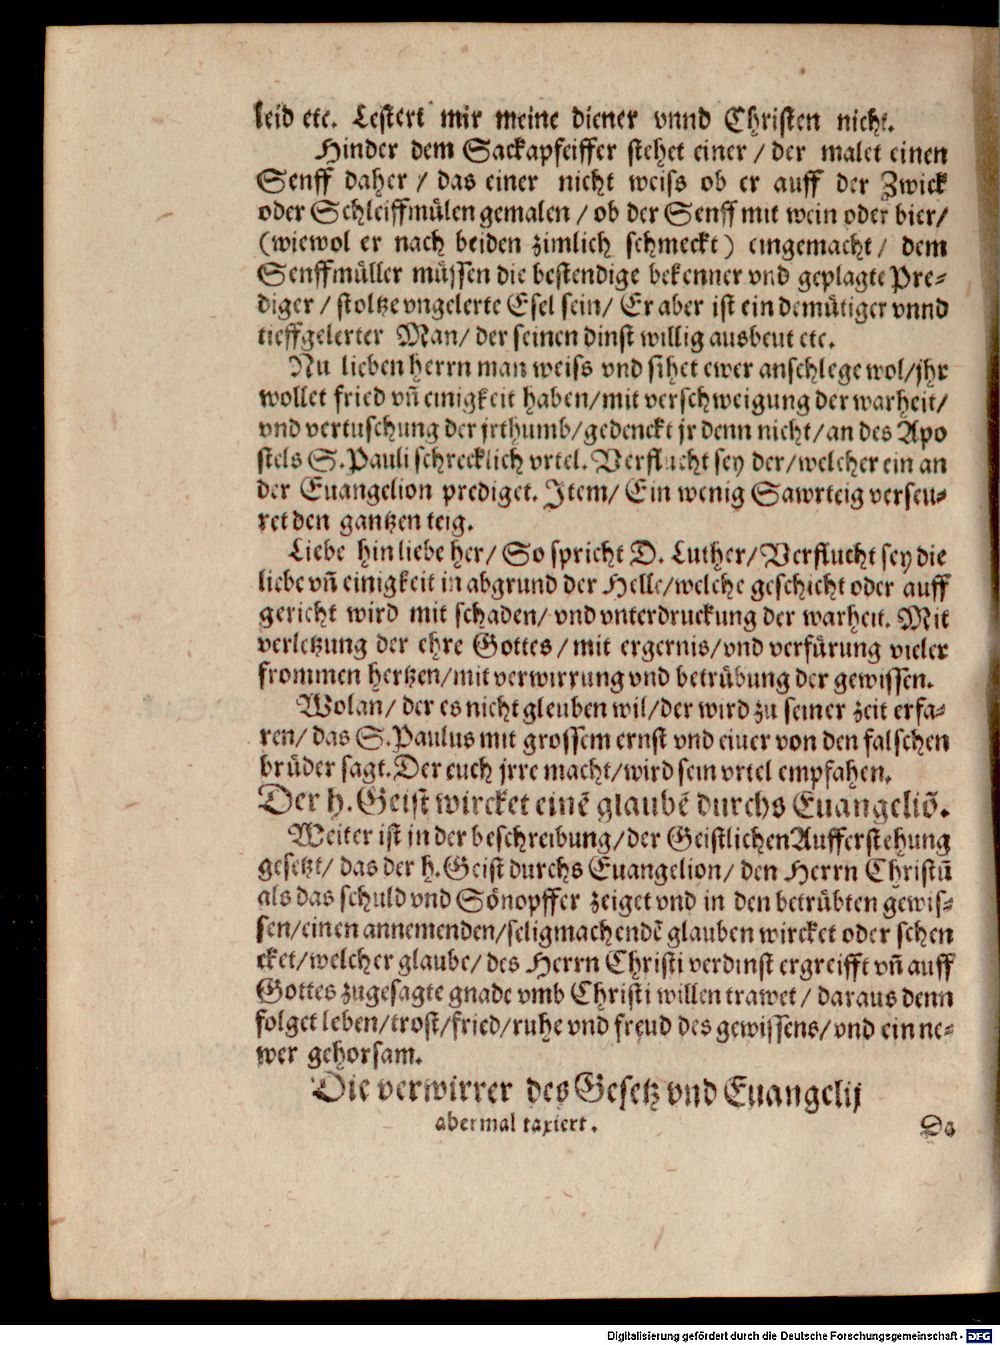 leid etc. Lestert mir meine diener vnnd Christen nicht.
Hinder dem Sackapfeiffer stehet einer / der malet einen
Senff daher / das einer nicht weiss ob er auff der Zwick
oder Schleiffmülen gemalen / ob der Senff mit wein oder bier/
(wiewol er nach beiden zimlich schmeckt) eingemacht / dem
Senffmüller müssen die bestendige bekenner vnd geplagte Pre-
diger / stoltze vngelerte Esel sein/ Er aber ist ein demütiger vnnd
tieffgelerter Man/ der seinen dinst willig ausbeut etc.
Nu lieben herrn man weiss vnd sihet ewer anschlege wol/jhr
wollet fried vñ einigkeit haben/mit verschweigung der warheit/
vnd vertuschung der jrthumb/gedenckt jr denn nicht/an des Apo
stels S.Pauli schrecklich vrtel. Verflucht sey der/welcher ein an
der Euangelion prediget. Item/ Ein wenig Sawrteig verseu-
ret den gantzen teig.
Liebe hin liebe her/ So spricht D. Luther/Verflucht sey die
liebe vñ einigkeit in abgrund der Helle/welche geschicht oder auff
gericht wird mit schaden/ vnd vnterdruckung der warheit. Mit
verletzung der ehre Gottes / mit ergernis/vnd verfürung vieler
frommen hertzen/mit verwirrung vnd betrübung der gewissen.
Wolan/ der es nicht gleuben wil/der wird zu seiner zeit erfa-
ren/ das S.Paulus mit grossem ernst vnd eiuer von den falschen
brüder sagt.Der euch jrre macht/wird sein vrtel empfahen.
Der h.Geist wircket einē glaubē durchs Euangeliō.
Weiter ist in der beschreibung/der Geistlichen Aufferstehung
gesetzt/ das der h.Geist durchs Euangelion/ den Herrn Christū
als das schuld vnd Sönopffer zeiget vnd in den betrübten gewis-
sen/einen annemenden/seligmachendē glauben wircket oder schen
cket/welcher glaube/des Herrn Christi verdinst ergreifft vñ auff
Gottes zugesagte gnade vmb Christi willen trawet / daraus denn
folget leben/trost/fried/ruhe vnd freud des gewissens/vnd ein ne-
wer gehorsam.
Die verwirrer des Gesetz vnd Euangelij
abermal taxiert.
Da
Digitalisierung gefördert durch die Deutsche Forschungsgemeinschaft - DFG